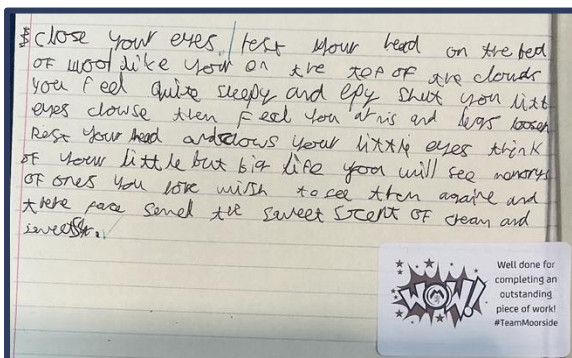 Close your eyes, rest your head on the bed
of wool like your on the top of the clouds
you feel quite sleepy and epy shut you litt
eyes clowse then feel you arms and legs loosen
Rest your head and clows your little eyes think
of your little but big life you will see memorys
of ones you love wish to see them againe and
there face smell the sweet scent of cream and
sweets.
WOW!
Well done for
completing an
outstanding
piece of work!
#TeamMoorside